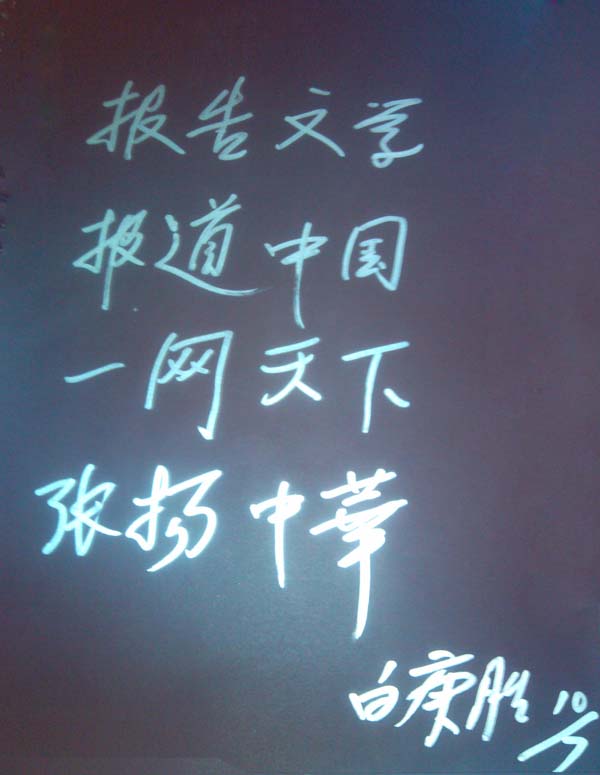 报告文学
报道中国
一网天下
张扬中華
白庚胜 10/5